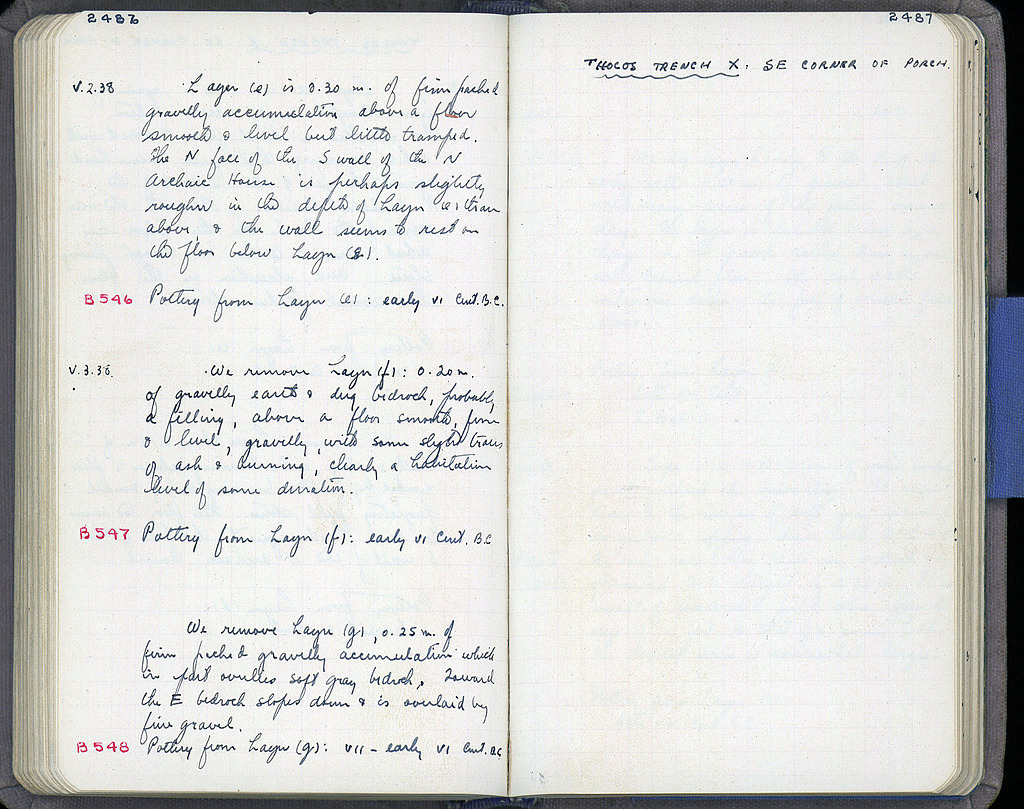 2486
V.2.38 Layer (e) is 0.30 m. of firm packed
gravelly accumulation above a floor
smooth & level but little tramped.
The N face of the S wall of the N
Archaic House is perhaps slightly
rougher in the depth of Layer (e) than
above, & the wall seems to rest on
the floor below Layer (e).
B546 Pottery from Layer (e): early VI Cent. B.C.
V.3.38. We remove Layer (f): 0.20 m.
of gravelly earth & dug bedrock, probably
a filling, above a floor smooth, firm
& level, gravelly, with some slight traces
of ash & burning, clearly a habitation
level of some duration.
B547 Pottery from Layer (f): early VI Cent. B.C.
We remove Layer (g), 0.25 m. of
firm packed gravelly accumulation which
in part overlies soft gray bedrock. Toward
the E bedrock slopes down & is overlaid by
fine gravel.
B548 Pottery from Layer (g): VII - early VI Cent. B.C.
2487
THOLOS TRENCH X: SE CORNER OF PORCH.